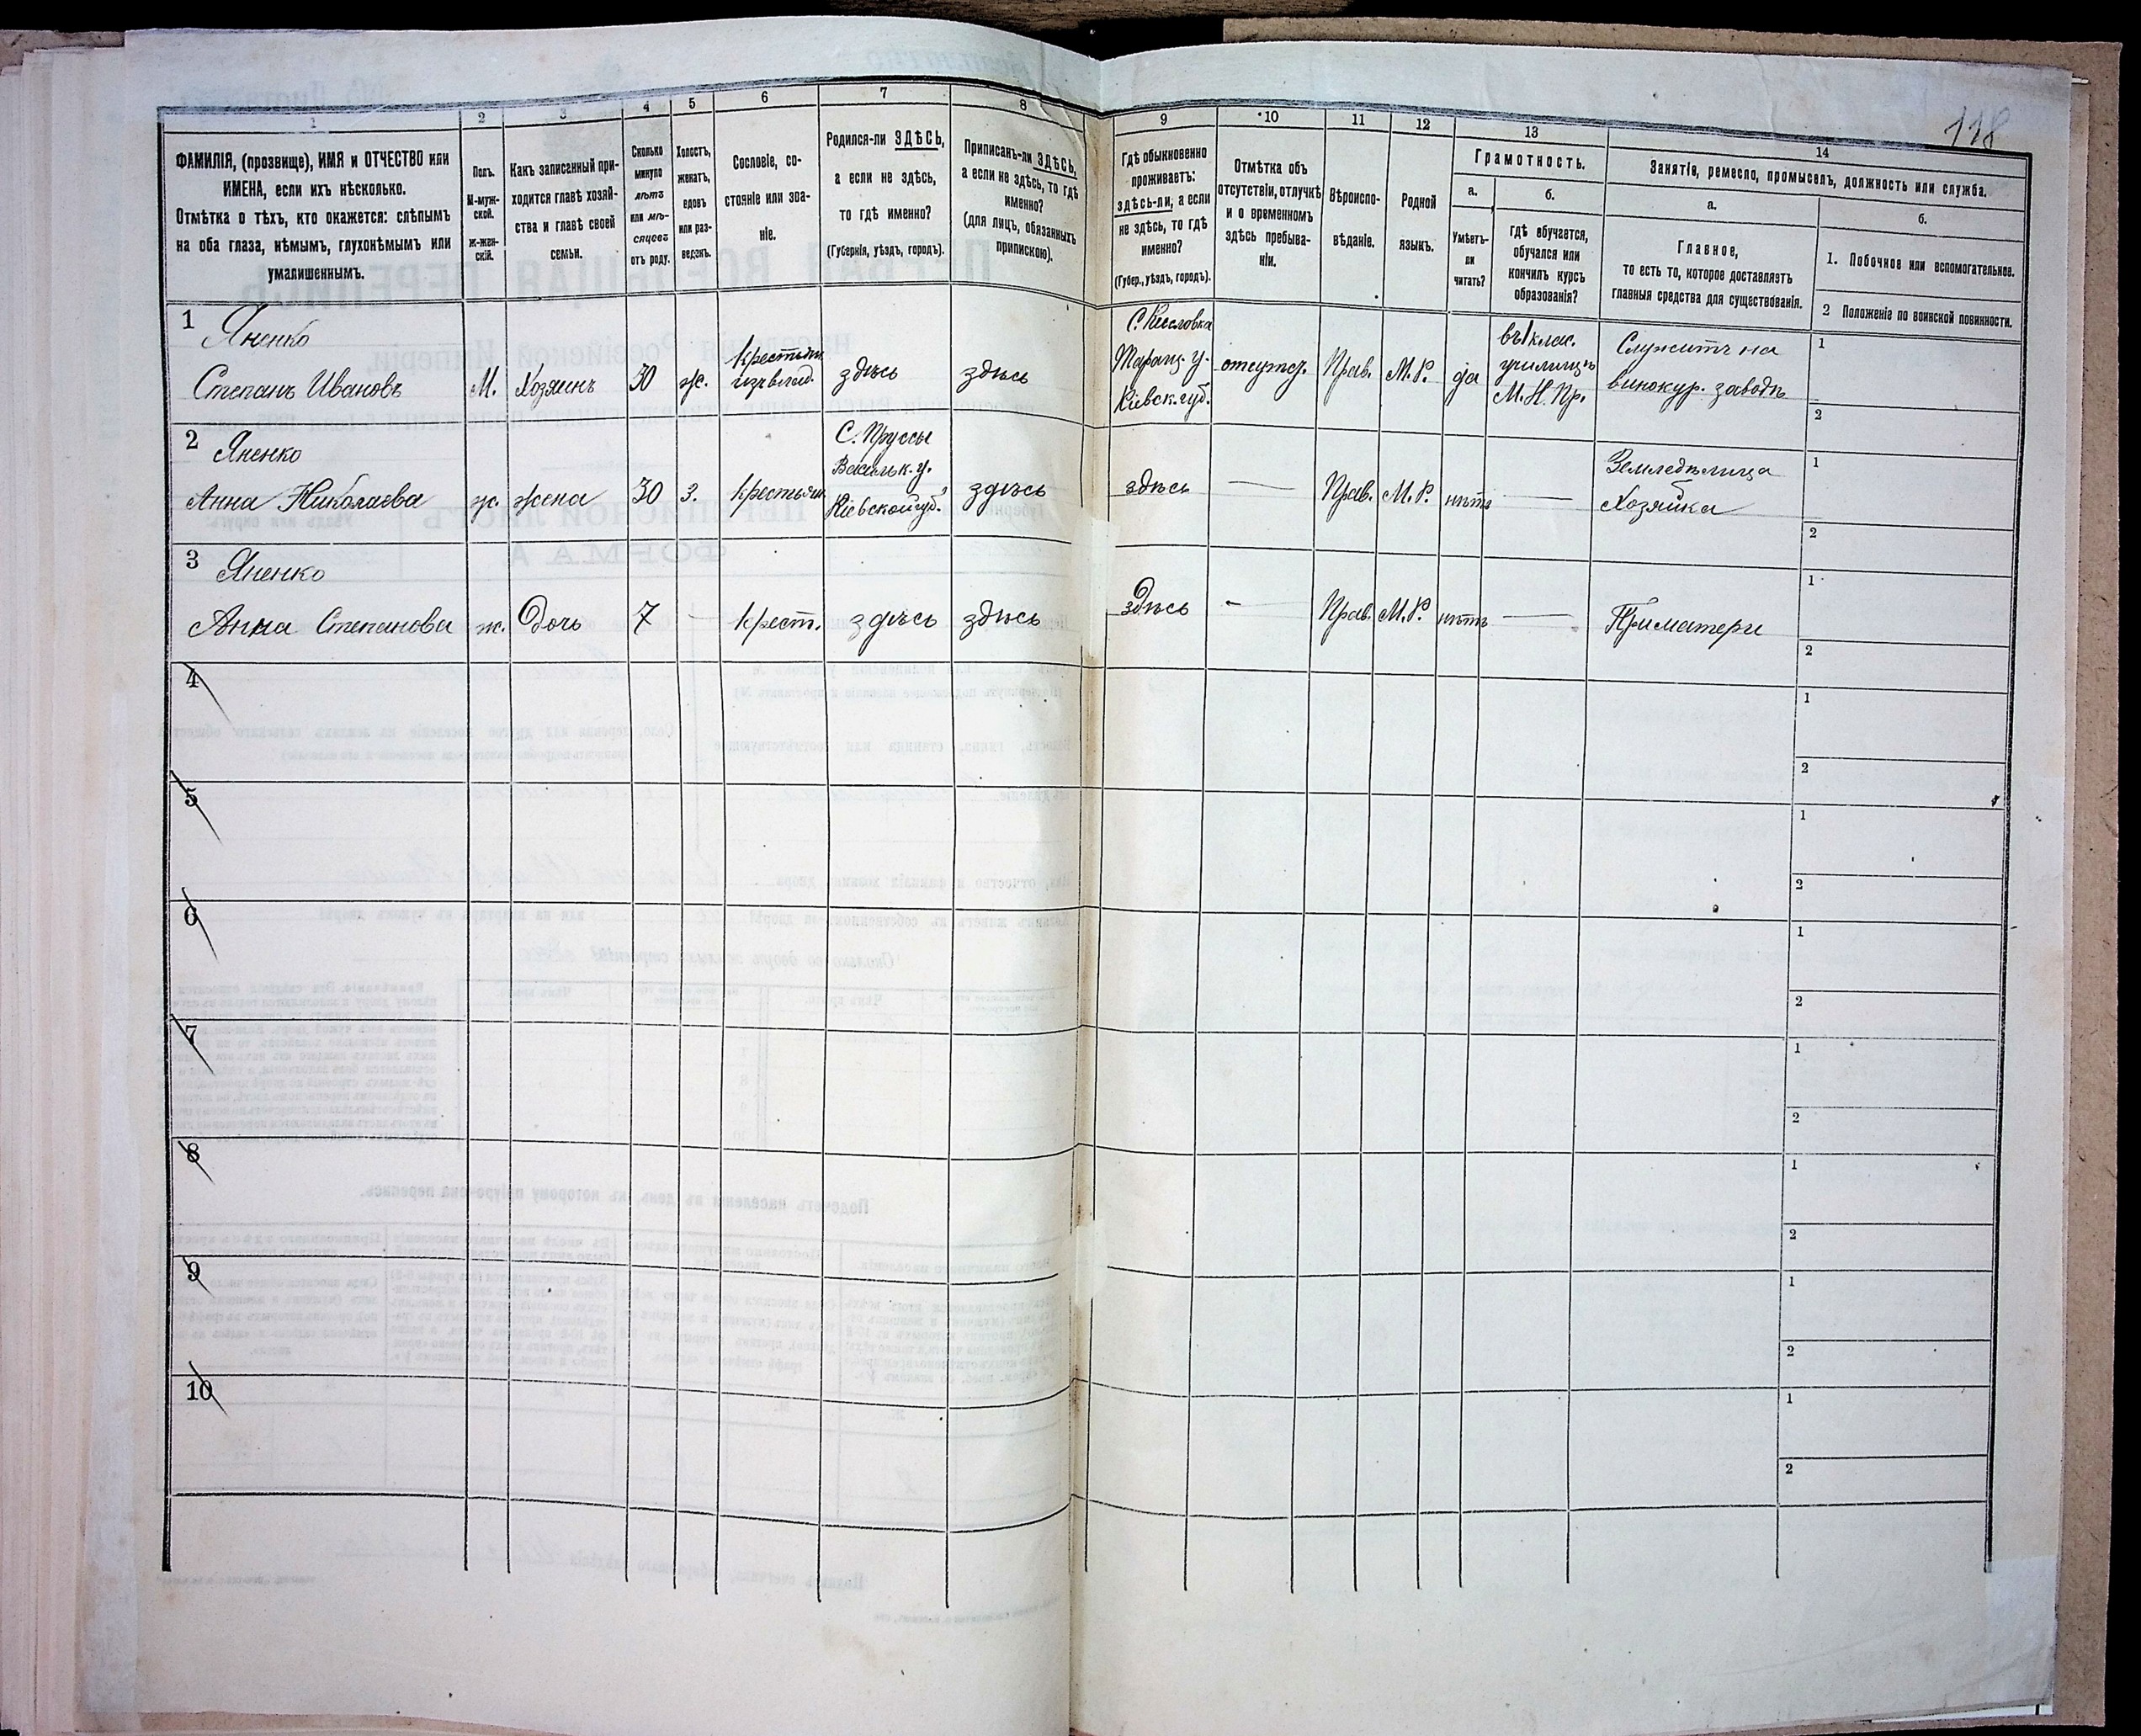 118
1
2
3
4
5
6
7
8
9
10
11
12
13
14
ФАМИЛІЯ, (прозвище), ИМЯ и ОТЧЕСТВО или
ИМЕНА, если ихъ нѣсколько.
Отмѣтка о тѣхъ, кто окажется: слѣпымъ
на оба глаза, нѣмымъ, глухонѣмымъ или
умалишеннымъ.
Полъ.
М-муж-
ской.
ж-жен-
скій.
Какъ записанный при-
ходится главѣ хозяй-
ства и главѣ своей
семьи.
Сколько
минуло
лѣтъ
или мѣ-
сяцевъ
отъ роду.
Холостъ,
женатъ,
вдовъ
или раз-
веденъ.
Сословіе, со-
стояніе или зва-
ніе.
Родился-ли ЗДѢСЬ,
а если не здѣсь,
то гдѣ именно?
(Губернія, уѣздъ, городъ).
Приписанъ-ли ЗДѢСЬ,
а если не здѣсь, то гдѣ
именно?
(для лицъ, обязанныхъ
припискою).
Гдѣ обыкновенно
проживаетъ:
здѣсь-ли, а если
не здѣсь, то гдѣ
именно?
(Губер., уѣздъ, городъ).
Отмѣтка объ
отсутствіи, отлучкѣ
и о временномъ
здѣсь пребыва-
ніи.
Вѣроиспо-
вѣданіе.
Родной
языкъ.
Грамотность.
а.
б.
Умѣетъ-
ли
читать?
гдѣ обучается,
обучался или
кончилъ курсъ
образованія?
Занятіе, ремесло, промыселъ, должность или служба.
а.
б.
Главное,
то есть то, которое доставляетъ
главныя средства для существованія.
1. Побочное или вспомогательное.
2 Положеніе по воинской повинности.
1
Яненко
Степанъ Ивановъ
М.
Хозяинъ
30
ж.
крестьян.
изъ влад.
здѣсь
здѣсь
Таращ. у.
Кіевск. губ.
Прав.
М. Р.
да
въ 1 клас.
училищѣ
М. Н. Пр.
Служитъ на
винокур. заводѣ
1
2
2
Яненко
Анна Николаева
ж.
жена
30
з.
крестьян.
С. Пруссы
Васильк. у.
Кіевской губ.
здѣсь
здѣсь
—
Прав.
М. Р.
нѣтъ
—
Земледѣлица
Хозяйка
1
2
3
Яненко
Анна Степанова
ж.
Дочь
7
—
крест.
здѣсь
здѣсь
здѣсь
—
Прав.
М. Р.
нѣтъ
—
При матери
1
2
4
1
2
5
1
2
6
1
2
7
1
2
8
1
2
9
1
2
10
1
2